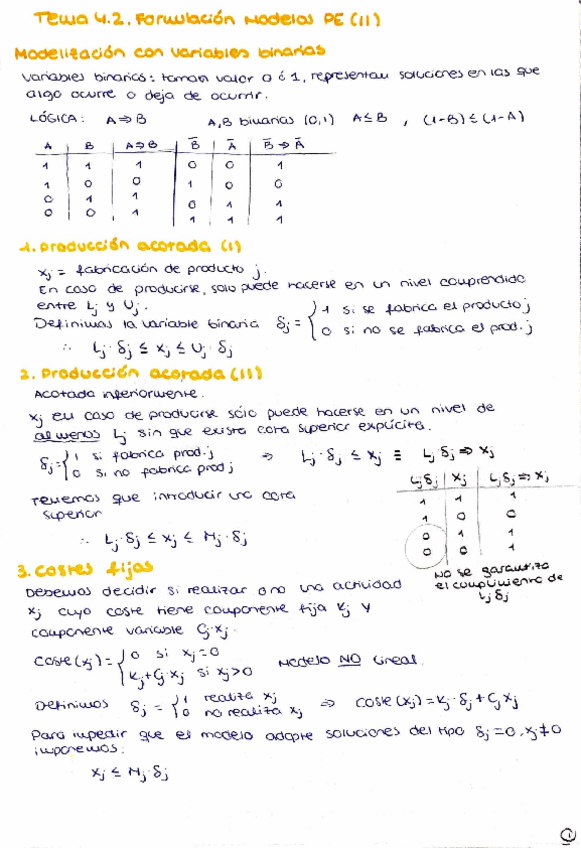 Tema 4.2. Formulación Modelos PE (II)
Modelización con variables binarias
Variables binarias: toman valor 0 ó 1, representan soluciones en las que
algo ocurre o deja de ocurrir.
LÓGICA: A ⇒ B A, B binarias (0,1) A ≤ B , (1-B) ≤ (1-A)
A B A⇒B B̄ Ā B̄ ⇒ Ā
1 1 1 0 0 1
1 0 0 1 0 0
0 1 1 0 1 1
0 0 1 1 1 1
1. Producción acotada (I)
xj = fabricación de producto j.
En caso de producirse, solo puede hacerse en un nivel comprendido
entre Lj y Uj.
Definimos la variable binaria δj = { 1 si se fabrica el producto j
0 si no se fabrica el prod. j
∴ Lj · δj ≤ xj ≤ Uj · δj
2. Producción acotada (II)
Acotada inferiormente.
xj en caso de producirse sólo puede hacerse en un nivel de
al menos Lj sin que exista cota superior explícita.
δj = { 1 si fabrica prod. j
0 si no fabrica prod j
⇒ Lj · δj ≤ xj ≡ Lj δj ⇒ xj
Lj δj xj Lj δj ⇒ xj
1 1 1
1 0 0
0 1 1
0 0 1
Tenemos que introducir una cota
superior
∴ Lj · δj ≤ xj ≤ Mj · δj
No se garantiza
el cumplimiento de
Lj δj
3. Costes fijos
Debemos decidir si realizar o no una actividad
xj cuyo coste tiene componente fija Kj y
componente variable Cj · xj.
Coste (xj) = { 0 si xj = 0
Kj + Cj · xj si xj > 0
Modelo NO lineal.
Definimos δj = { 1 realiza xj
0 no realiza xj
⇒ coste (xj) = Kj · δj + Cj xj
Para impedir que el modelo adopte soluciones del tipo δj = 0, xj ≠ 0
imponemos:
xj ≤ Mj · δj
1